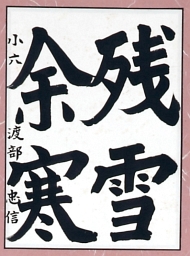 残雪
余寒
小六 渡部 忠信